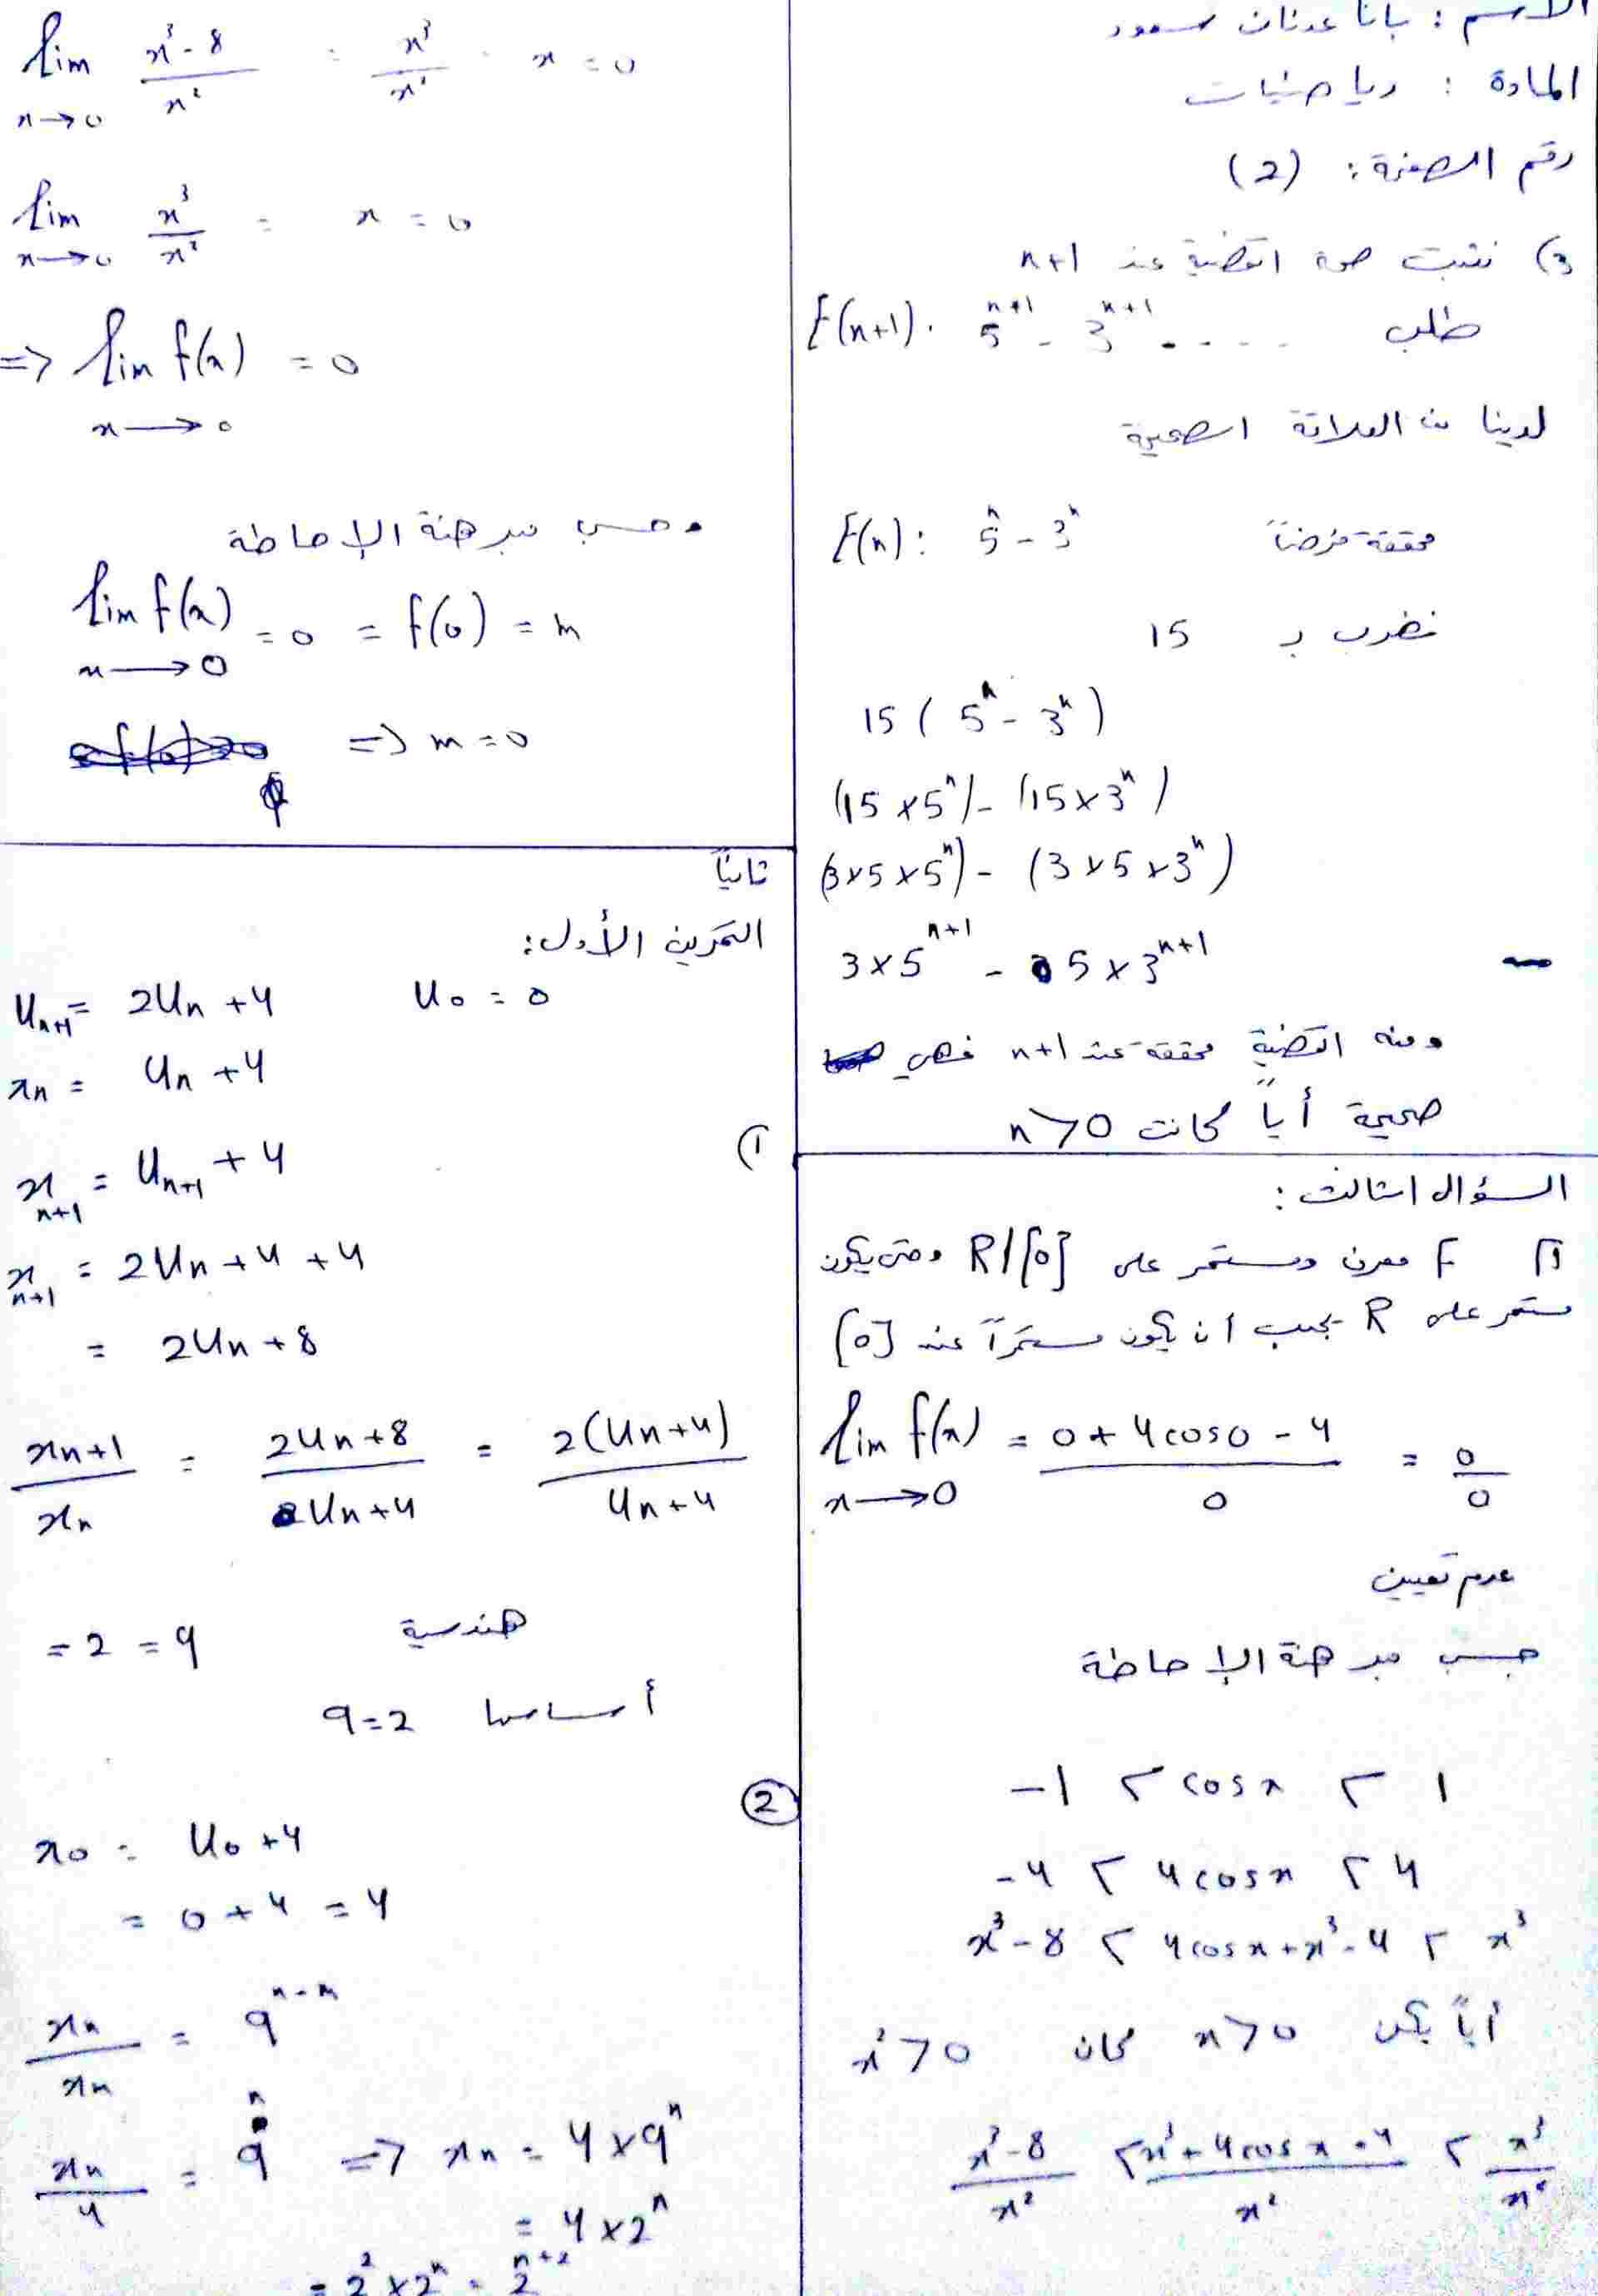 الاسم : بانا عدنان مسعود
المادة : رياضيات
رقم الصفحة : (2)
3) نثبت صحة القضية عند n+1
E(n+1). 5^{n+1} - 3^{n+1} . - - - - طلب
لدينا من العلاقة الصحيحة
E(n): 5^n - 3^n محققة فرضاً
نضرب بـ 15
15 ( 5^n - 3^n )
(15 × 5^n) - (15 × 3^n)
(3×5×5^n) - (3×5×3^n)
3×5^{n+1} - 5×3^{n+1}
ومنه القضية محققة عند n+1 فهي
صحيحة أياً كانت n>0
السؤال الثالث :
1] F معرف ومستمر على R\{0} وحتى يكون
مستمر على R يجب أن يكون مستمراً عند {0}
lim_{x→0} f(x) = (0+4cos0-4)/0 = 0/0
عدم تعيين
حسب مبرهنة الإحاطة
-1 < cos x < 1
-4 < 4cos x < 4
x^3-8 < 4cos x + x^3 - 4 < x^3
أياً يكن x>0 كان x^2>0
(x^3-8)/x^2 < (x^3+4cos x-4)/x^2 < x^3/x^2
lim_{x→0} (x^3-8)/x^2 = x^3/x^2 = x = 0
lim_{x→0} x^3/x^2 = x = 0
=> lim_{x→0} f(x) = 0
وحسب مبرهنة الإحاطة
lim_{x→0} f(x) = 0 = f(0) = m
=> m = 0
ثانياً
التمرين الأول:
u_{n+1} = 2u_n + 4 u_0 = 0
x_n = u_n + 4
1) x_{n+1} = u_{n+1} + 4
x_{n+1} = 2u_n + 4 + 4
= 2u_n + 8
x_{n+1}/x_n = (2u_n+8)/(u_n+4) = 2(u_n+4)/(u_n+4)
= 2 = q هندسية
أساسها q=2
②
x_0 = u_0 + 4
= 0 + 4 = 4
x_n/x_m = q^{n-m}
x_n/4 = q^n => x_n = 4×q^n
= 4×2^n
= 2^2×2^n = 2^{n+2}